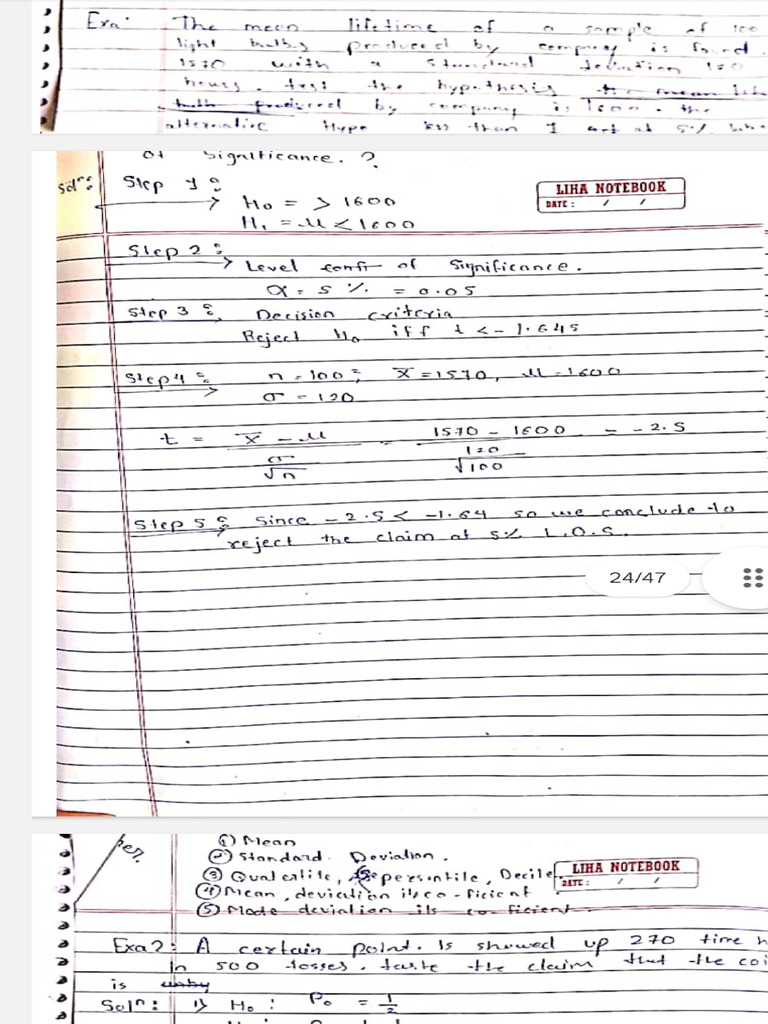 Exa: The mean lifetime of a sample of 100
light bulbs produced by company is found.
1570 with a standard deviation 120
hours. test the hypothesis the mean
bulb produced by company is 1600. the
alternative Hypo less than 1 at 5%
of significance. ?
Soln: Step 1:
LIHA NOTEBOOK
DATE: / /
H0 = > 1600
H1 = μ < 1600
Step 2:
Level of Significance.
α = 5 % = 0.05
Step 3: Decision criteria
Reject H0 iff t < - 1.645
Step 4: n = 100; x̄ = 1570, μ = 1600
σ = 120
t = x̄ - μ / σ/√n = 1570 - 1600 / 120/√100 = -2.5
Step 5: Since -2.5 < -1.64 so we conclude to
reject the claim at 5% L.O.S.
24/47
① Mean
② Standard Deviation.
③ persentile, Decile
LIHA NOTEBOOK
DATE: / /
④ Mean, deviation its co-ficient
⑤ Mode deviation its co-ficient.
Exa2: A certain point. Is showed up 270 time
In 500 tosses. taste the claim that the coi
is
Soln: 1) H0: P0 = 1/2